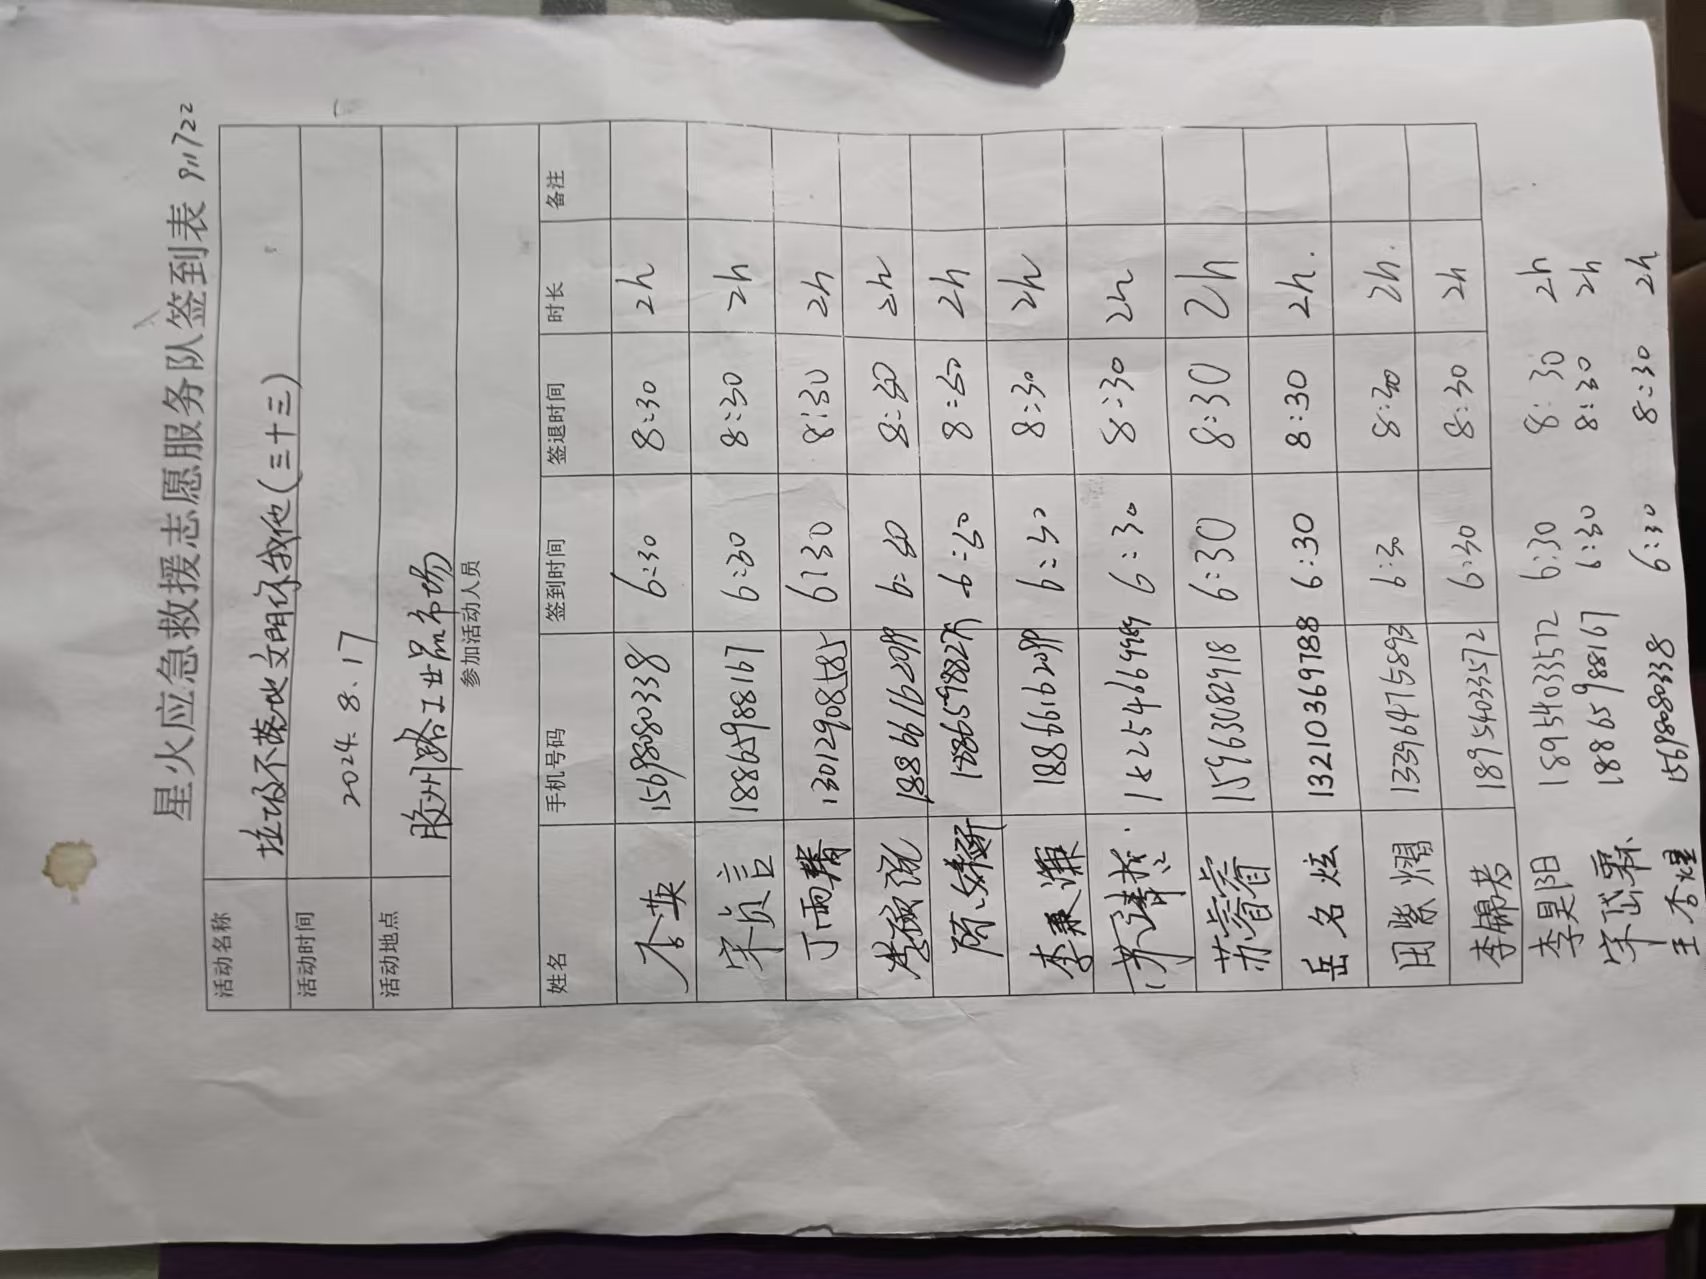 星火应急救援志愿服务队签到表
活动名称 垃圾不落地文明你我他(三十三)
活动时间 2024.8.17
活动地点 胶州路工业品市场
参加活动人员
姓名 手机号码 签到时间 签退时间 时长 备注
英 15698080338 6:30 8:30 2h
宋贞言 18865988167 6:30 8:30 2h
丁雨 13012908585 6:30 8:30 2h
18866162099 6:30 8:30 2h
6:30 8:30 2h
李兼谦 18866162099 6:30 8:30 2h
苏 6:30 8:30 2h
苏睿睿 15963082918 6:30 8:30 2h
岳名炫 13210369788 6:30 8:30 2h.
田紫熠 13396475893 6:30 8:30 2h.
李锦 18954033572 6:30 8:30 2h
李昊阳 18954033572 6:30 8:30 2h
宋岱霖 18865988167 6:30 8:30 2h
王 15698080338 6:30 8:30 2h